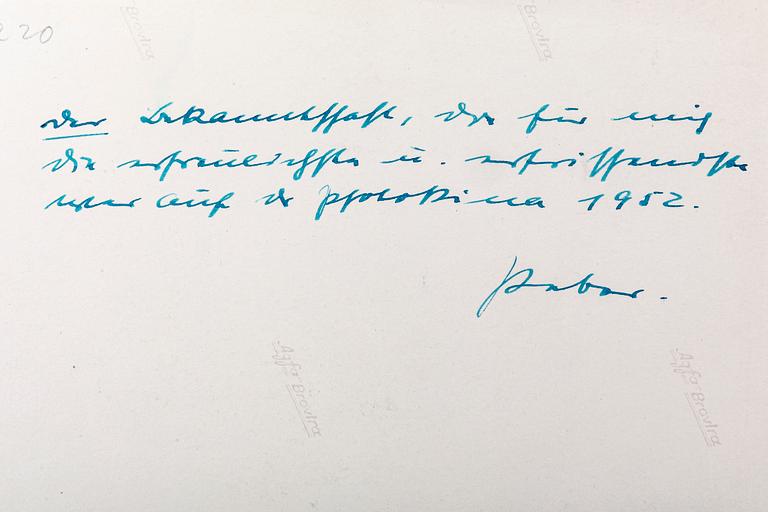 220
Agfa Brovira
Agfa Brovira
der Bekanntschaft, die für mich
die erfreulichste u. erfrischendste
war auf der photokina 1952.
Agfa Brovira
Agfa Brovira